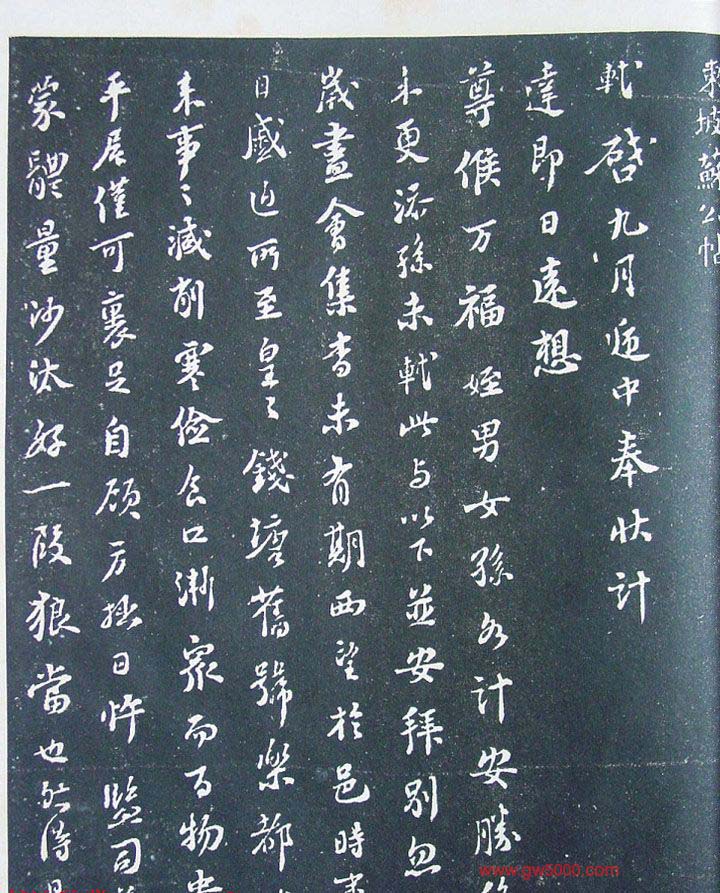 東坡蘇公帖
軾啓九月递中奉狀計
達即日遠想
尊候万福姪男女孫各計安勝
未更添孫未軾此与以下並安拜別忽
歲盡會集杳未有期西望於邑時
日感迫所至皇〻錢塘舊號樂都
来事〻減削寒儉食口漸衆而百物
平居僅可裹足自顧方拙日忤監司
蒙體量沙汰好一段狼當也然得
www.gw5000.com